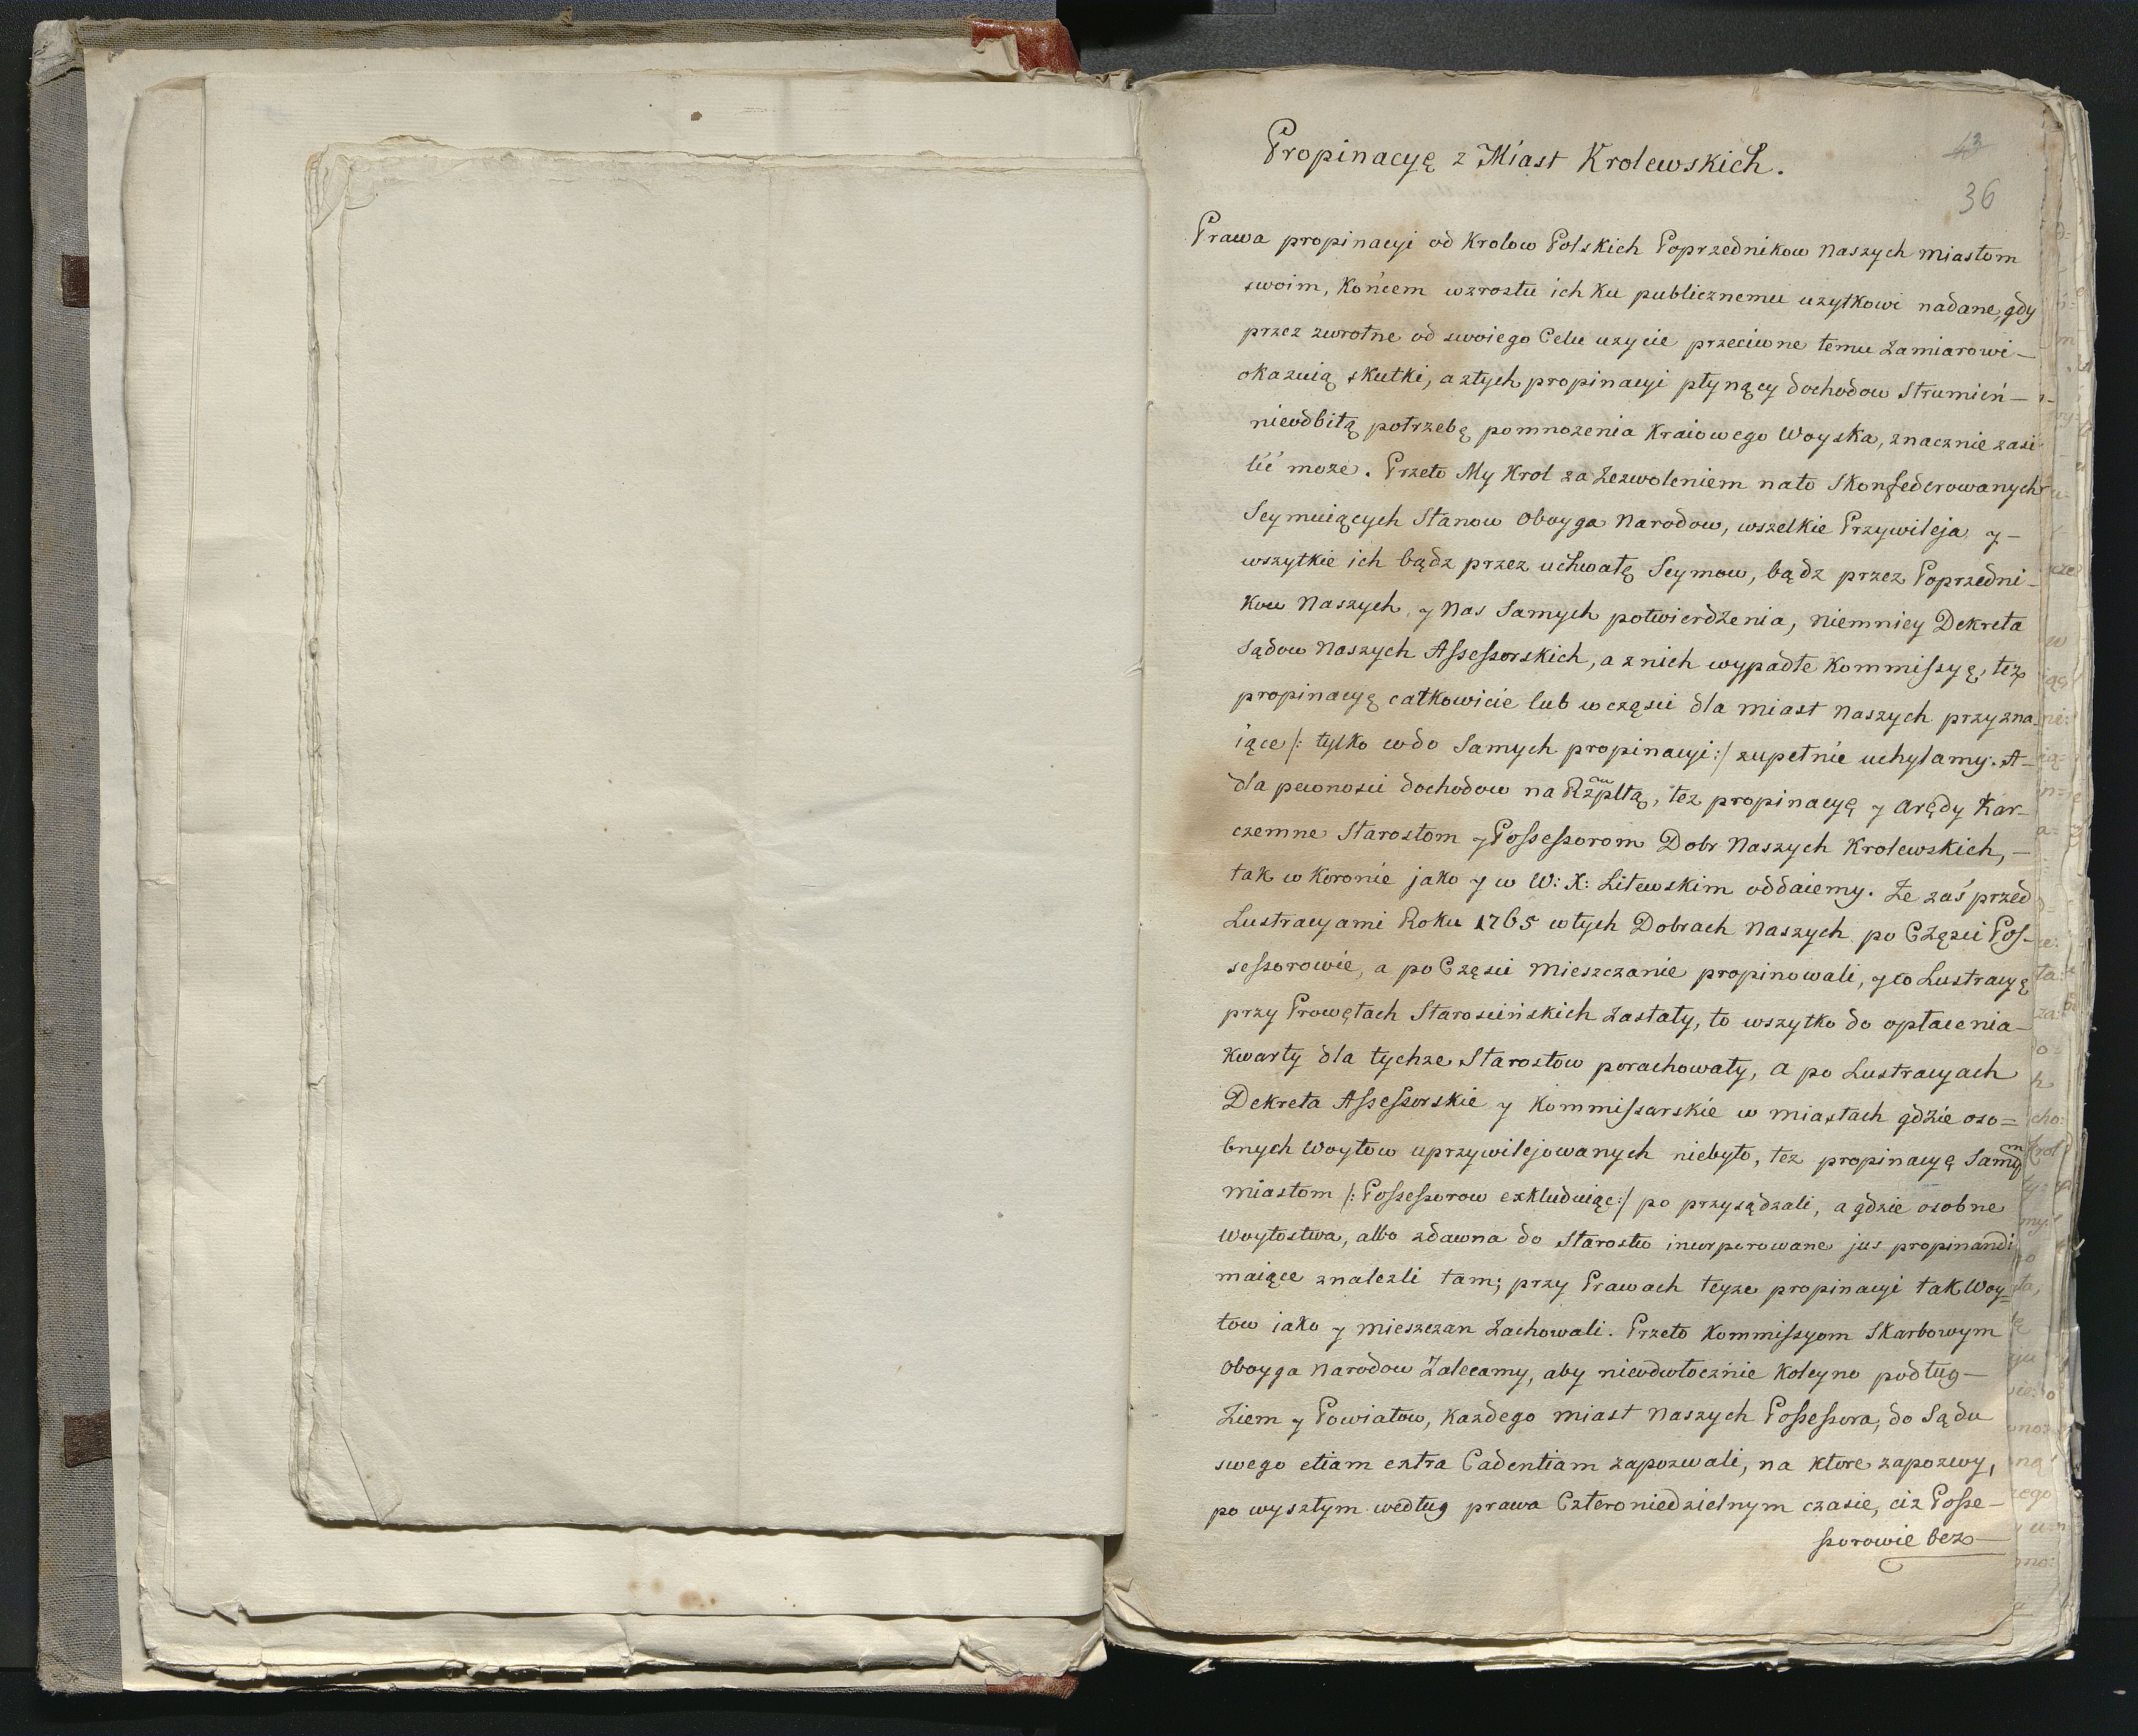 Propinacyę z Miast Krolewskich.
43
36
Prawa propinacyi od Krolow Polskich Poprzednikow Naszych miastom
swoim, Końcem wzrostu ich Ku publicznemu uzytkowi nadane, gdy
przez zwrotne od swoiego Celu uzycie przeciwne temu zamiarowi —
okazuią skutki, a ztych propinacyi płynący dochodow Strumień —
nieodbitą potrzebę pomnozenia Kraiowego Woyska, znacznie zasi
lić moze. Przeto My Krol za Zezwoleniem nato Skonfederowanych
Seymuiących Stanow Oboyga Narodow, wszelkie Przywileja y —
wszytkie ich bądz przez uchwałę Seymow, bądz przez Poprzedni-
kow Naszych y Nas Samych potwierdzenia, niemniey Dekreta
Sądow Naszych Assessorskich, a znich wypadłe Kommissyę, tez
propinacyę całkowicie lub wczęsci dla miast Naszych przyzna
iące /: tylko wdo Samych propinacyi :/ zupełnie uchylamy. A —
dla pewnosci dochodow na Rzpltą, tez propinacyę y Arędy Kar-
czemne Starostom y Possessorom Dobr Naszych Krolewskich, —
tak w Koronie jako y w W: X: Litewskim oddaiemy. Ze zaś przed
Lustracyami Roku 1765 wtych Dobrach Naszych po Częsci Pos-
sessorowie, a po Częsci Mieszczanie propinowali, y co Lustracyę
przy Prowętach Starościńskich Zastały, to wszytko do opłacenia —
Kwarty dla tychze Starostow porachowały, a po Lustracyach
Dekreta Assessorskie y Kommissarskie w miastach gdzie oso=
bnych Woytow uprzywilejowanych niebyło, tez propinacyę Samym
miastom /: Possessorow exkluduiąc :/ po przysądzali, a gdzie osobne
Woytostwa, albo zdawna do Starostw inkorporowane jus propinandi
maiące znalezli tam; przy Prawach teyze propinacyi tak Woy=
tow iako y mieszczan Zachowali. Przeto Kommissyom Skarbowym
Oboyga Narodow Zalecamy, aby nieodwłocznie Koleyno podług —
Ziem y Powiatow, Kazdego miast Naszych Possessora, do Sądu
swego etiam extra Cadentiam zapozwali, na ktore zapozwy,
po wyszłym według prawa Czteroniedzielnym czasie, ciz Posse —
ssorowie bez —